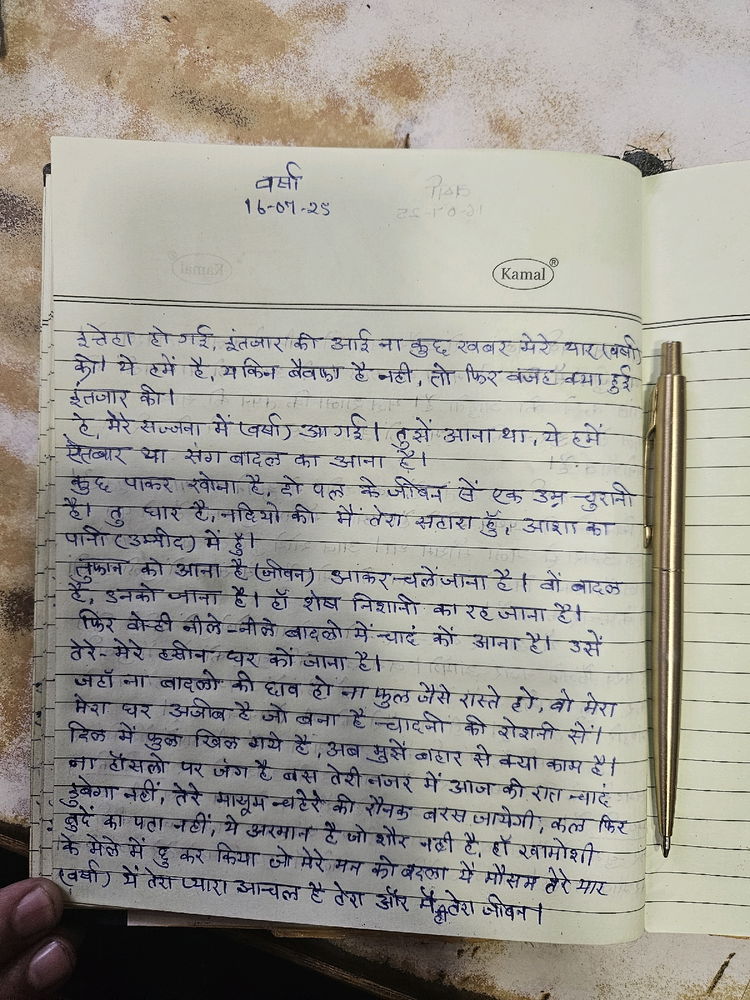 वर्षा
16-07-25
Kamal
इन्तेहा हो गई इंतजार की आई ना कुछ खबर मेरे यार (वर्षा)
की। ये हमें है, यकिन बैवफा है नही, तो फिर वजह क्या हुई
इंतजार की।
हे, मेरे सज्जना में (वर्षा) आ गई। तुझें आना था, ये हमें
ऐतबार था संग बादल का आना है।
कुछ पाकर खोना है, दो पल के जीवन सें एक उम्र चुरानी
है। तु धार है, नदियो की मैं तेरा सहारा हुँ, आशा का
पानी (उम्मीद) में हुँ।
(तुफान को आना है (जीवन) आकर चलें जाना है। वो बादल
है, उनको जाना है। हाँ शेष निशानी का रह जाना है।
फिर वोन्ही नीले-नीले बादलो में चादं कों आना है। उसें
तेरे-मेरे हसीन घर कों जाना है।
जहाँ ना बादलो की छाव हो ना फुल जैसे रास्ते हो, वो मेरा
मेरा घर अजीब है जो बना है चादनी की रोशनी सें।
दिल में फुल खिल गये है, अब मुझें बहार से क्या काम है।
ना हौसलो पर जंग है बस तेरी नजर में आज की रात चादं
डुबेगा नहीं, तेरे मासूम चहेरे की रौनक बरस जायेगी, कल फिर
बुदें का पता नहीं, ये अरमान है जो शौर नही है, हाँ खामोशी
के मेले में छु कर किया जो मेरे मन को बदला ये मौसम तेरे यार
(वर्षा) में तेरा प्यारा आन्चल है तेरा और मैं हुँ तेरा जीवन।